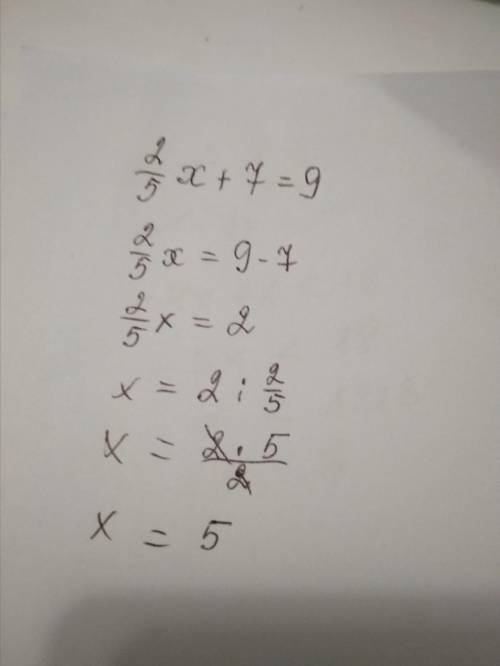 2/5 x + 7 = 9
2/5 x = 9 - 7
2/5 x = 2
x = 2 : 2/5
x = 2 · 5 / 2
x = 5